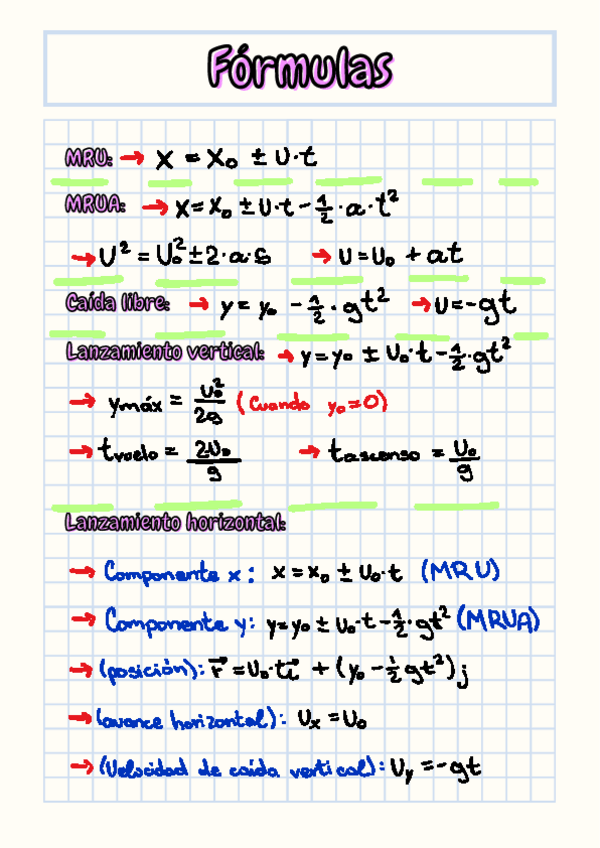 Fórmulas
MRU: → x = x₀ ± v·t
MRUA: → x = x₀ ± v·t - 1/2 · a · t²
→ v² = v₀² ± 2·a·s → v = v₀ + at
Caída libre: → y = y₀ - 1/2 · gt² → v = -gt
Lanzamiento vertical: → y = y₀ ± v₀·t - 1/2 · gt²
→ ymáx = v₀²/2g (Cuando y₀ = 0)
→ tvuelo = 2·v₀/g → tascenso = v₀/g
Lanzamiento horizontal:
→ Componente x: x = x₀ ± v₀·t (MRU)
→ Componente y: y = y₀ ± v₀·t - 1/2 · gt² (MRUA)
→ (posición): r⃗ = v₀·ti⃗ + (y₀ - 1/2 gt²) j
→ (avance horizontal): vₓ = v₀
→ (Velocidad de caída vertical): v_y = -gt